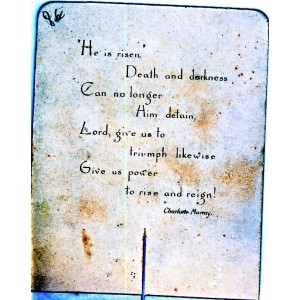 "He is risen,"
Death and darkness
Can no longer
Him detain,
Lord, give us to
triumph likewise
Give us power
to rise and reign!
Charlotte Murray.